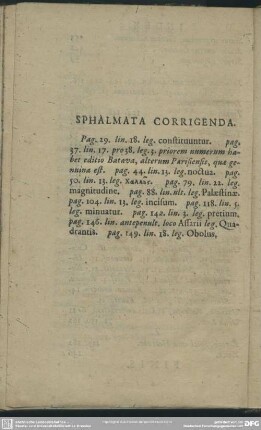 SPHALMATA CORRIGENDA.
Pag. 29. lin. 18. leg. constituuntur. pag.
37. lin. 17. pro 38. leg. 3. priorem numerum ha-
bet editio Batava, alterum Parisiensis, quæ ge-
nuina est. pag. 44. lin. 15. leg. noctua. pag.
50. lin. 13. leg. pag. 79. lin. 22. leg.
magnitudine. pag. 88. lin. ult. leg. Palestinæ.
pag. 104. lin. 13. leg. incisum. pag. 118. lin. 5.
leg. minuatur. pag. 142. lin. 3. leg. pretium.
pag. 146. lin. antepenult. loco Assarii leg. Qua-
drantis. pag. 149. lin. 18. leg. Obolus,